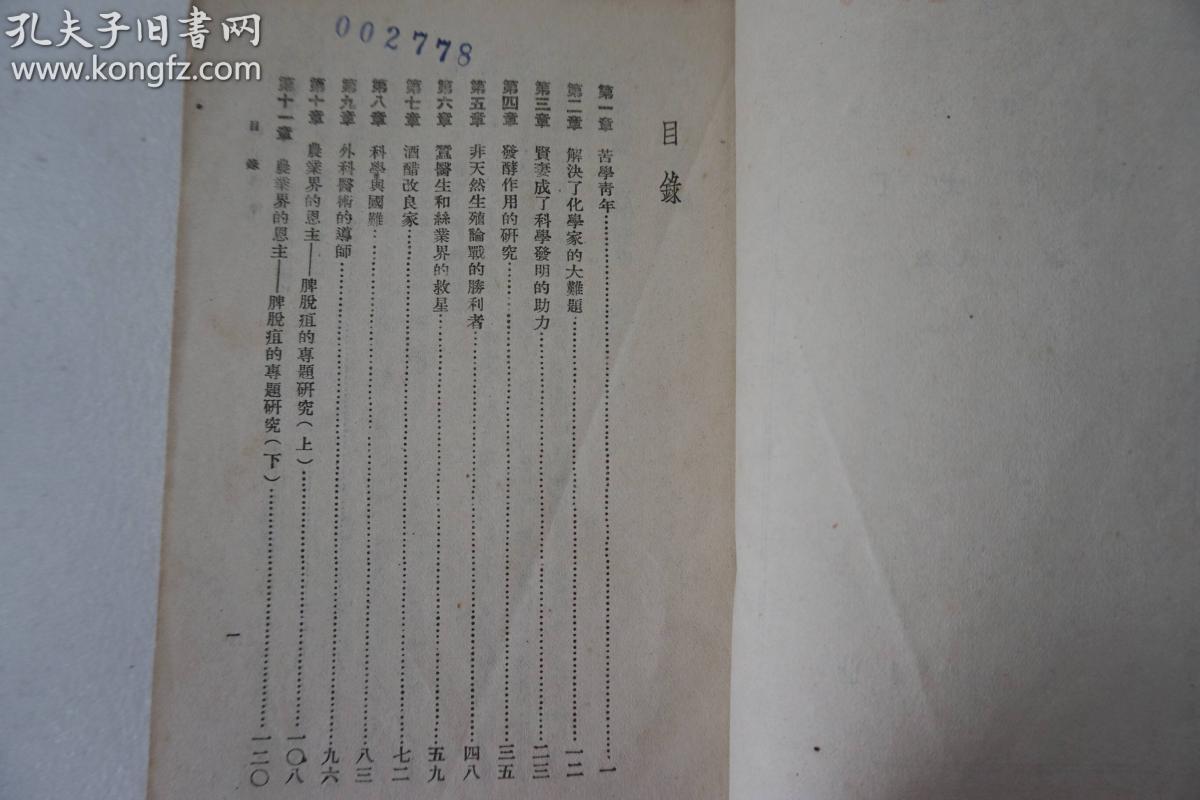 孔夫子旧书网
www.kongfz.com
002778
目錄
第一章 苦學青年……一
第二章 解決了化學家的大難題……一二
第三章 賢妻成了科學發明的助力……二三
第四章 發酵作用的研究……三五
第五章 非天然生殖論戰的勝利者……四八
第六章 蠶醫生和絲業界的救星……五九
第七章 酒醋改良家……七二
第八章 科學與國難……八三
第九章 外科醫術的導師……九六
第十章 農業界的恩主——脾脫疽的專題研究(上)……一〇八
第十一章 農業界的恩主——脾脫疽的專題研究(下)……一二〇
目錄
一